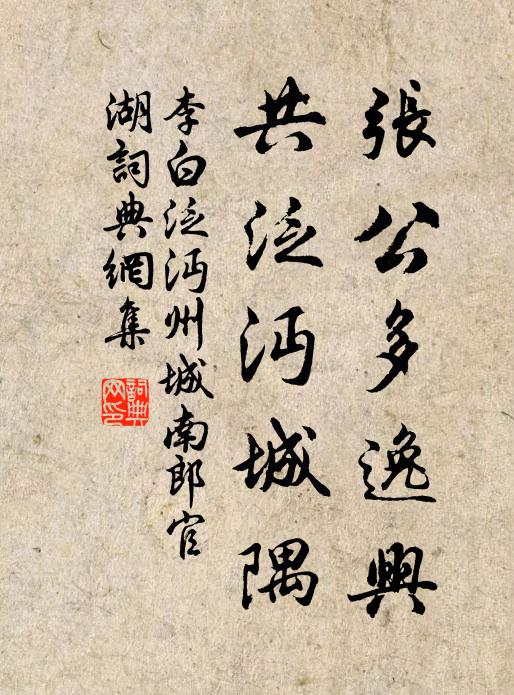 張公多逸興
共泛沔城隅
李白泛沔州城南郎官
湖詞典網集
詞典網印